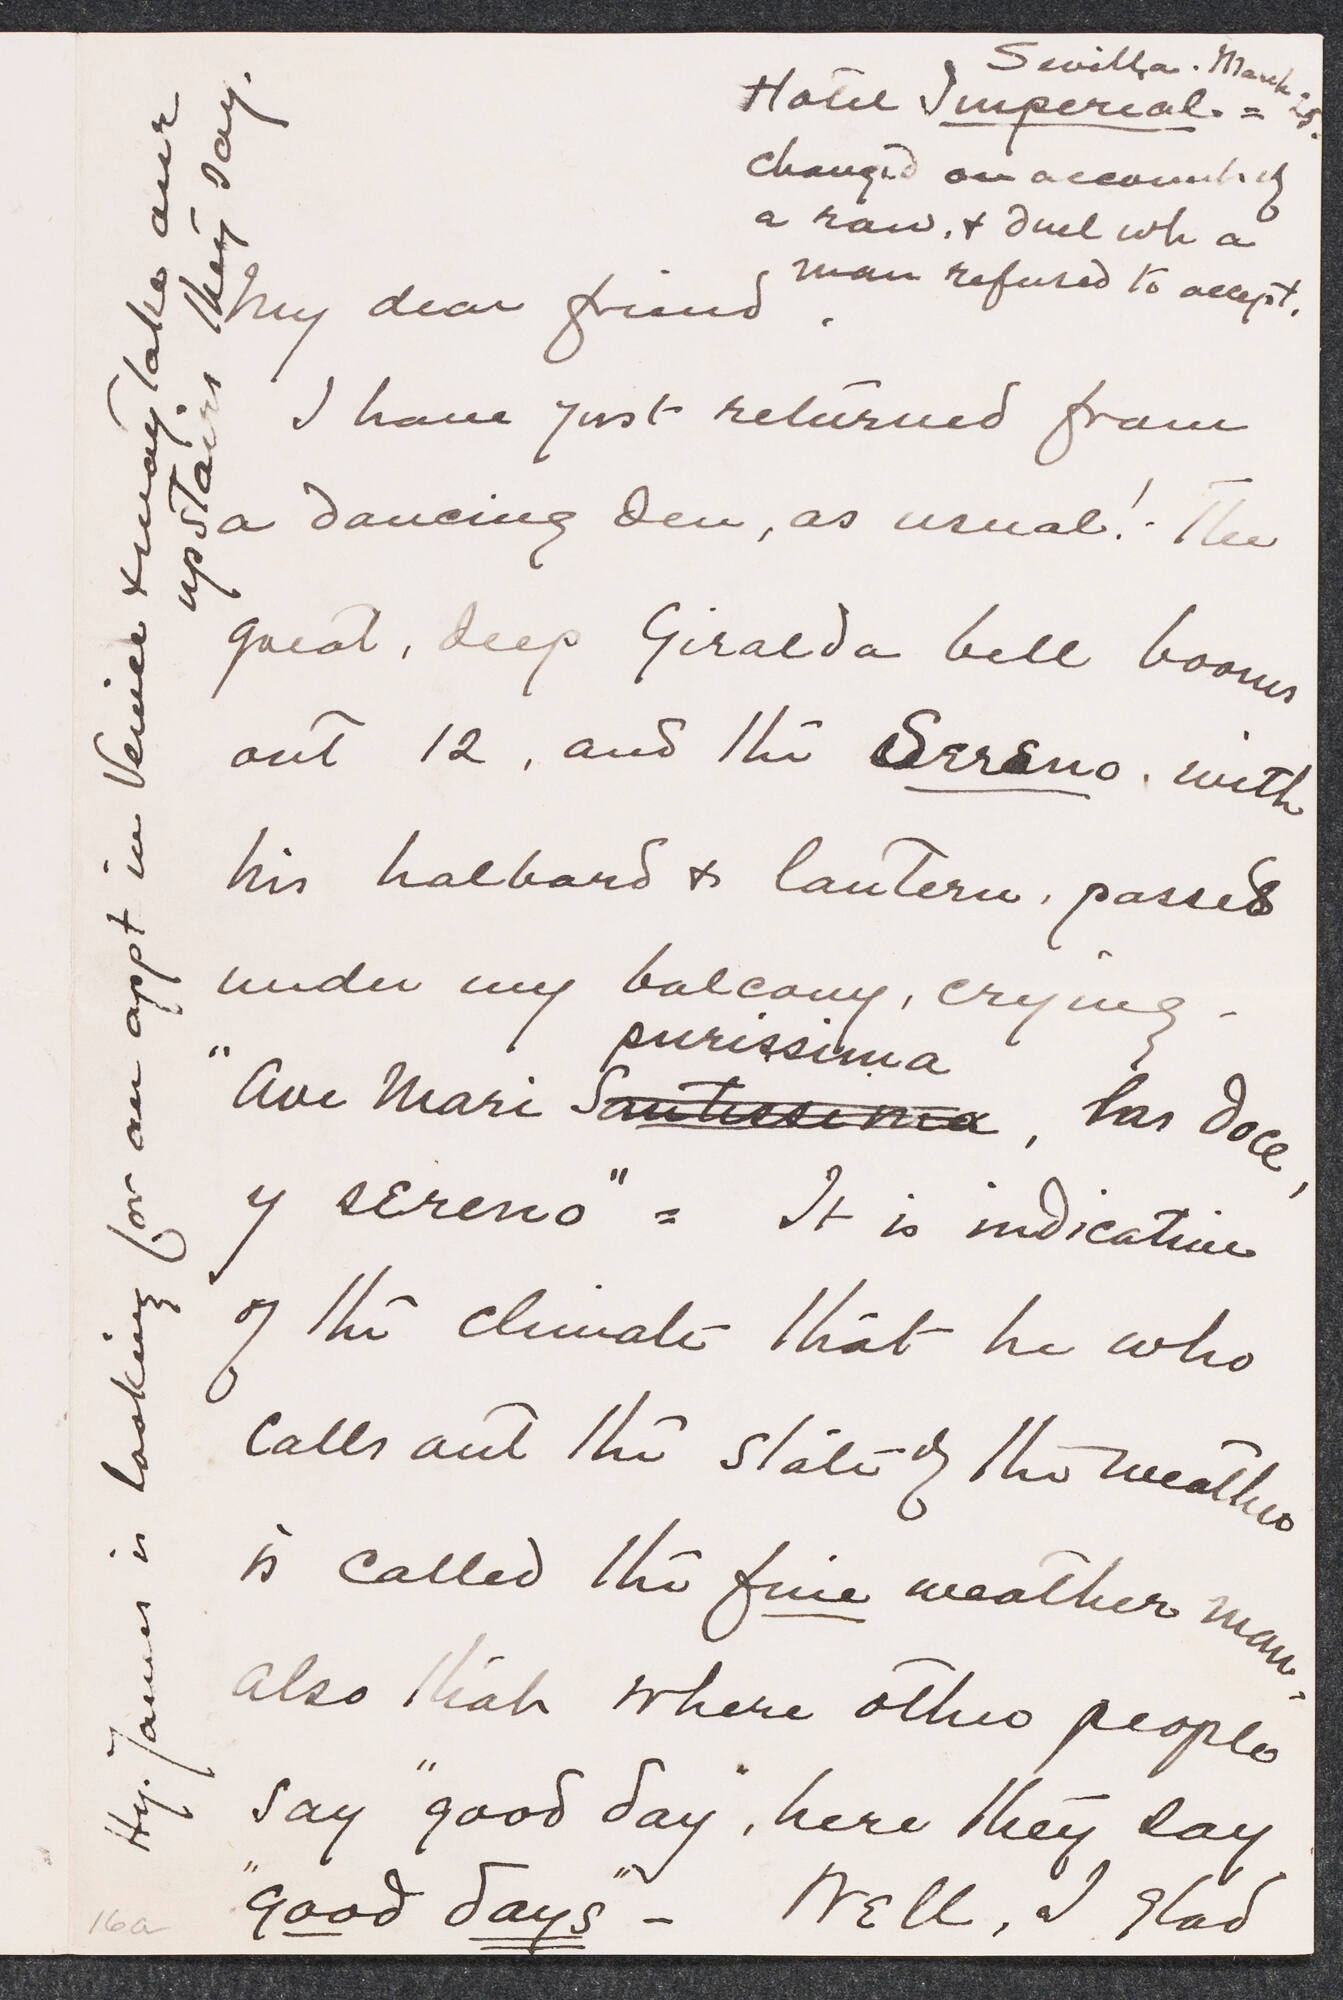 Sevilla. March 25.
Hotel Imperial. =
changed on account of
a row, & duel wh a
man refused to accept.
My dear friend.
I have just returned from
a dancing den, as usual! The
great, deep Giralda bell booms
out 12, and the Sereno, with
his halbard & lantern, passes
under my balcony, crying -
purissima
"Ave Mari Santissima, las doce,
y sereno" = It is indicative
of the climate that he who
calls out the state of the weather
is called the fine weather man,
also that where other people
say "good day", here they say
"good days" - Well, I glad
Hy. James is looking for an appt in Venice & may take our
upstairs they say.
16a